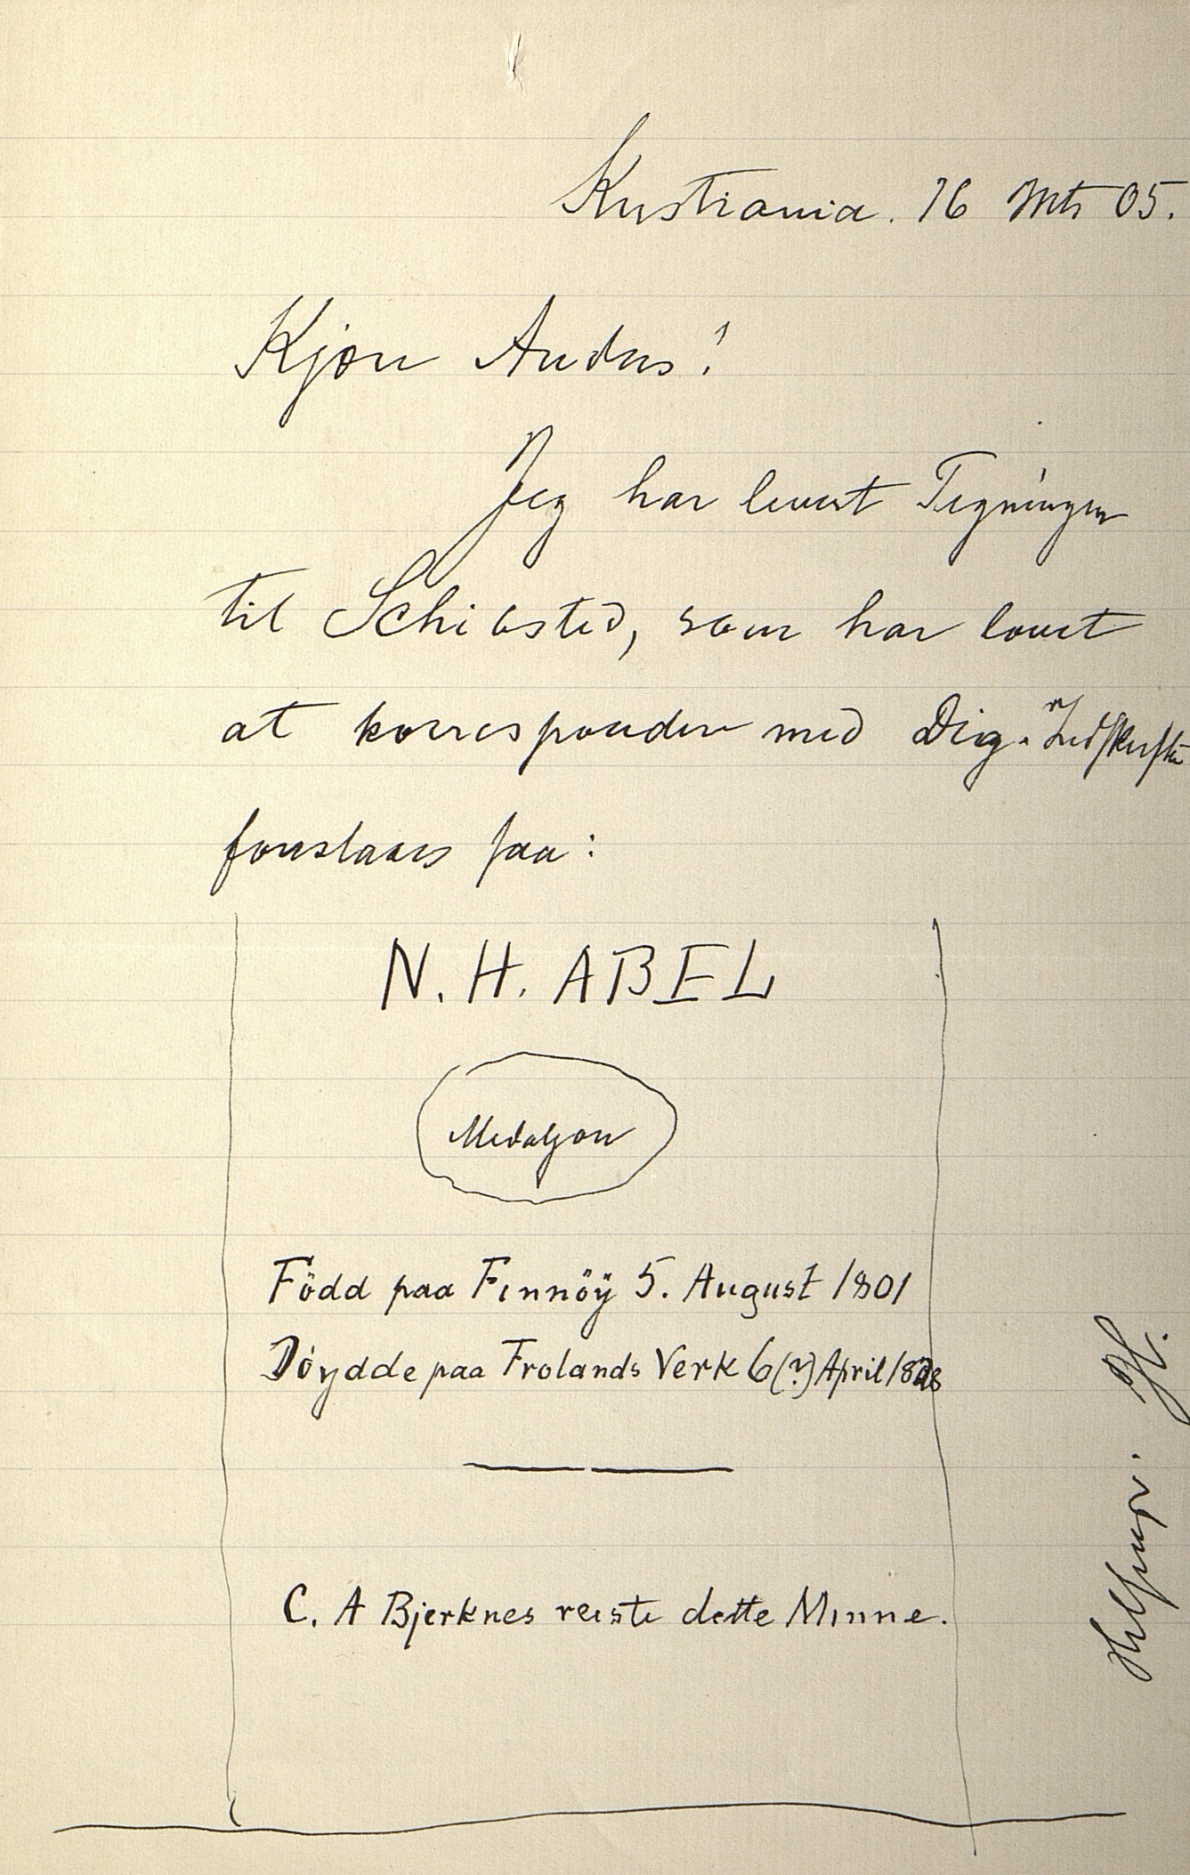 Kristiania. 16 Mts 05.
Kjære Andres!
Jeg har levert Tegningen
til Schiøsted, som har lovet
at korrespondere med Dig. Indskriften
foreslaaes paa:
N. H. ABEL
Medaljon
Född paa Finnöÿ 5. August 1801
Döydde paa Frolands Verk 6(?) April 1828
C. A Bjerknes reiste dette Minne.
Hilsen.